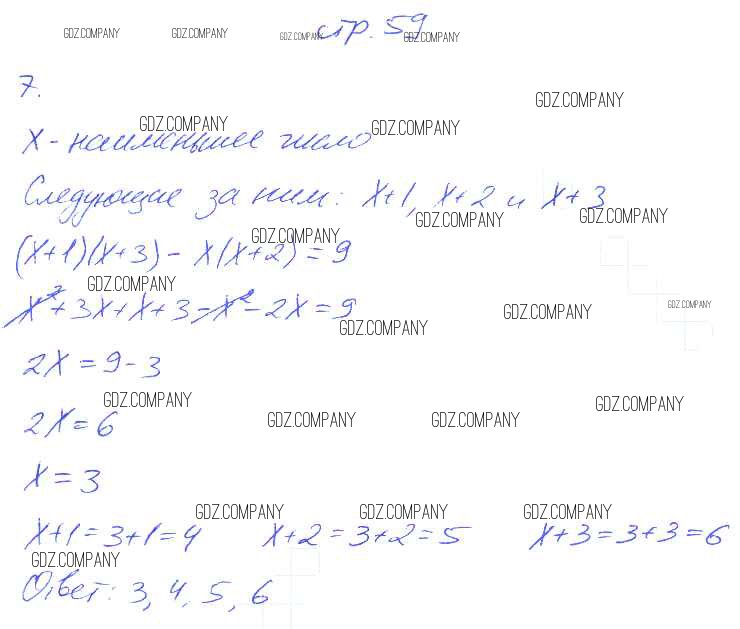 GDZ.COMPANY GDZ.COMPANY GDZ.COMPANY стр. 59 GDZ.COMPANY
7.
GDZ.COMPANY
GDZ.COMPANY GDZ.COMPANY
X - наименьшее число
Следующие за ним: X+1, X+2 и X+3
GDZ.COMPANY GDZ.COMPANY
GDZ.COMPANY
(X+1)(X+3) - X(X+2) = 9
GDZ.COMPANY
X² + 3X + X + 3 - X² - 2X = 9
GDZ.COMPANY GDZ.COMPANY GDZ.COMPANY
2X = 9 - 3
GDZ.COMPANY GDZ.COMPANY
2X = 6
GDZ.COMPANY GDZ.COMPANY
X = 3
GDZ.COMPANY GDZ.COMPANY GDZ.COMPANY
X+1 = 3+1 = 4 X+2 = 3+2 = 5 X+3 = 3+3 = 6
GDZ.COMPANY
Ответ: 3, 4, 5, 6